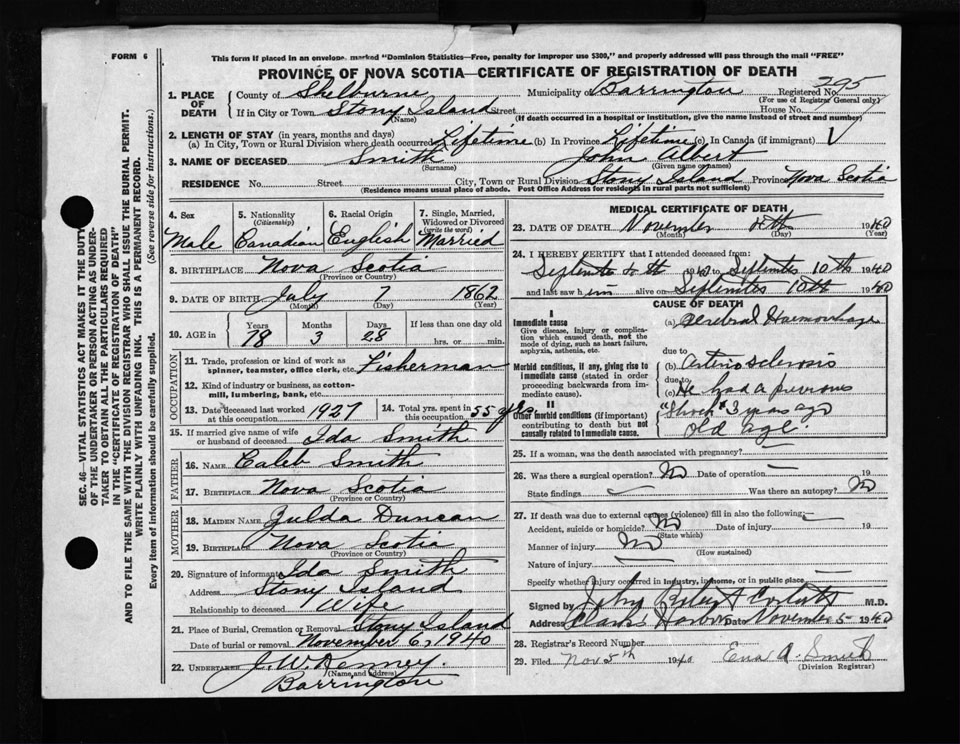 FORM 6
This form if placed in an envelope, marked "Dominion Statistics—Free, penalty for improper use $300," and properly addressed will pass through the mail "FREE"
PROVINCE OF NOVA SCOTIA—CERTIFICATE OF REGISTRATION OF DEATH
1. PLACE OF DEATH
County of Shelburne Municipality of Barrington Registered No. 295
(For use of Registrar General only)
If in City or Town Stony Island Street House No.
(Name) (If death occurred in a hospital or institution, give the name instead of street and number)
2. LENGTH OF STAY (in years, months and days)
(a) In City, Town or Rural Division where death occurred Lifetime (b) In Province Lifetime (c) In Canada (if immigrant)
3. NAME OF DECEASED Smith John Albert
(Surname) (Given name or names)
RESIDENCE No. Street City, Town or Rural Division Stony Island Province Nova Scotia
(Residence means usual place of abode. Post Office Address for residents in rural parts not sufficient)
4. Sex
Male
5. Nationality
(Citizenship)
Canadian
6. Racial Origin
English
7. Single, Married, Widowed or Divorced
(write the word)
Married
8. BIRTHPLACE Nova Scotia
(Province or Country)
9. DATE OF BIRTH July 7 1862
(Month) (Day) (Year)
10. AGE in
Years Months Days If less than one day old
78 3 28 hrs. or min.
OCCUPATION
11. Trade, profession or kind of work as
spinner, teamster, office clerk, etc. Fisherman
12. Kind of industry or business, as cotton-
mill, lumbering, bank, etc.
13. Date deceased last worked at this occupation 1927
14. Total yrs. spent in this occupation 55 yrs
15. If married give name of wife
or husband of deceased Ida Smith
FATHER
16. NAME Caleb Smith
17. BIRTHPLACE Nova Scotia
(Province or Country)
MOTHER
18. MAIDEN NAME Zulda Duncan
19. BIRTHPLACE Nova Scotia
(Province or Country)
20. Signature of informant Ida Smith
Address Stony Island
Relationship to deceased Wife
21. Place of Burial, Cremation or Removal Stony Island
Date of burial or removal November 6, 1940
22. UNDERTAKER J. W. Kenney
(Name and address)
Barrington
MEDICAL CERTIFICATE OF DEATH
23. DATE OF DEATH November 1940
(Month) (Day) (Year)
24. I HEREBY CERTIFY that I attended deceased from:
1940 to September 10th 1940
and last saw him alive on September 10th 1940
CAUSE OF DEATH
I
Immediate cause
Give disease, injury or complication which caused death, not the mode of dying, such as heart failure, asphyxia, asthenia, etc.
(a) Cerebral Haemorrhage
due to
Morbid conditions, if any, giving rise to immediate cause (stated in order proceeding backwards from immediate cause).
(b) Arterio sclerosis
due to
(c) He had a previous
II
Other morbid conditions (if important) contributing to death but not causally related to immediate cause.
"Shock" 3 years ago
old age.
25. If a woman, was the death associated with pregnancy?
26. Was there a surgical operation? No Date of operation 19
State findings Was there an autopsy? No
27. If death was due to external causes (violence) fill in also the following:
Accident, suicide or homicide? No Date of injury 19
(State which)
Manner of injury No
(How sustained)
Nature of injury
Specify whether injury occurred in industry, in home, or in public place
Signed by John M.D.
Address Clarks Harbor Date November 5 1940
28. Registrar's Record Number
29. Filed Nov 5th 1940 Eva A. Smith
(Division Registrar)
SEC. 46—VITAL STATISTICS ACT MAKES IT THE DUTY
OF THE UNDERTAKER OR PERSON ACTING AS UNDER-
TAKER TO OBTAIN ALL THE PARTICULARS REQUIRED
IN THE "CERTIFICATE OF REGISTRATION OF DEATH"
AND TO FILE THE SAME WITH THE DIVISION REGISTRAR WHO SHALL ISSUE THE BURIAL PERMIT.
WRITE PLAINLY WITH UNFADING INK. THIS IS A PERMANENT RECORD.
Every item of information should be carefully supplied. (See reverse side for instructions.)